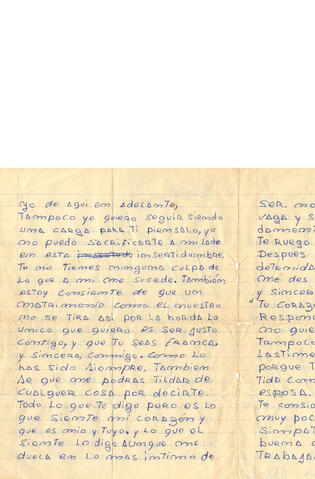 yo de aqui en adelante,
Tampoco yo quiero seguir siendo
una carga para Ti piensalo, yo
no puedo sacrificarte a mi lado
en esta insertidumbre.
Tu no Tienes ninguna culpa de
Lo que a mi me sucede. También
estoy consiente de que un
matrimonio como el nuestro
no se Tira asi por la borda Lo
unico que quiero es ser justo
contigo, y que Tu seas franca,
y sincera, conmigo. como Lo
has sido siempre, Tambien
se que me podras Tildar de
cualquier cosa por decirte.
Todo Lo que Te digo pero es Lo
que siente mi corazón y
que es mio y Tuyo, y Lo que el
siente Lo digo aunque me
duela en lo mas intimo de
ser. no
vaga y s
Te Ruego
Despues
detenida
me des
y sincer
Tu corazo
Respon
no quie
Tampoco
Lastime
porque T
Tida con
esposa.
Te consi
muy poc
simpat
buena
Trabajad